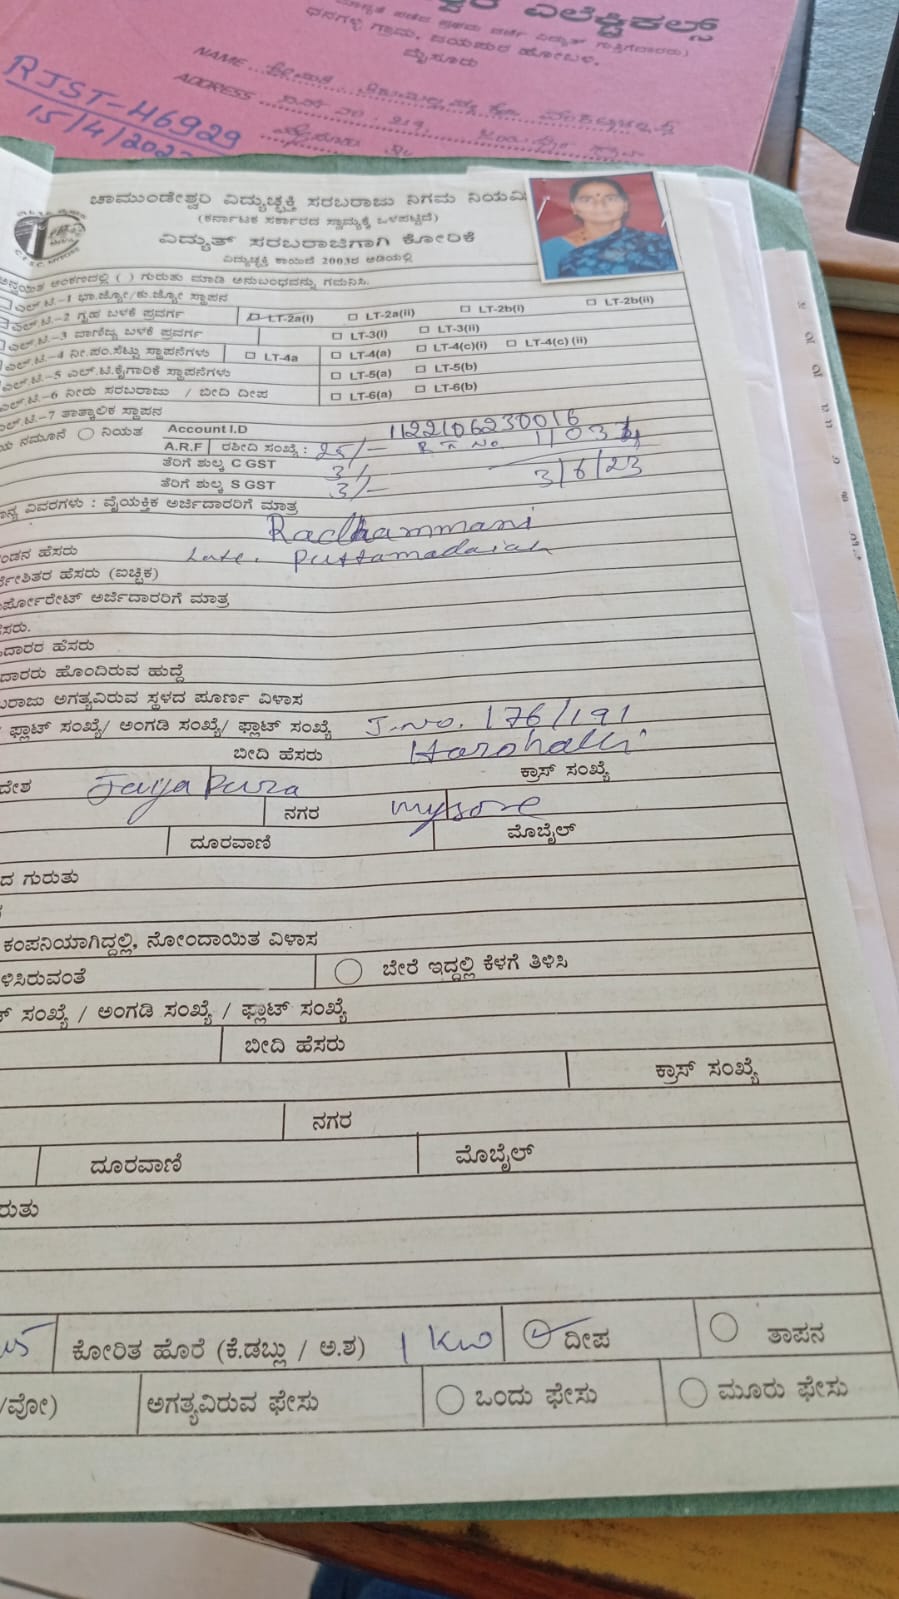 ಎಲೆಕ್ಟ್ರಿಕಲ್ಸ್
ಧನಗಳ್ಳಿ ಗ್ರಾಮ, ಜಯಪುರ ಹೋಬಳಿ,
ಮೈಸೂರು
NAME
ADDRESS
RJST-46929
15/4/202
ಚಾಮುಂಡೇಶ್ವರಿ ವಿದ್ಯುಚ್ಛಕ್ತಿ ಸರಬರಾಜು ನಿಗಮ ನಿಯಮಿ
(ಕರ್ನಾಟಕ ಸರ್ಕಾರದ ಸ್ವಾಮ್ಯಕ್ಕೆ ಒಳಪಟ್ಟಿದೆ)
ವಿದ್ಯುತ್ ಸರಬರಾಜಿಗಾಗಿ ಕೋರಿಕೆ
ವಿದ್ಯುಚ್ಛಕ್ತಿ ಕಾಯಿದೆ 2003ರ ಅಡಿಯಲ್ಲಿ
ಅನ್ವಯಿತ ಅಂಕಣದಲ್ಲಿ ( ) ಗುರುತು ಮಾಡಿ ಅನುಬಂಧವನ್ನು ಗಮನಿಸಿ.
ಎಲ್.ಟಿ.-1 ಭಾ.ಜ್ಯೋ/ಕು.ಜ್ಯೋ ಸ್ಥಾಪನ
ಎಲ್.ಟಿ.-2 ಗೃಹ ಬಳಕೆ ಪ್ರವರ್ಗ LT-2a(i) LT-2a(ii) LT-2b(i) LT-2b(ii)
ಎಲ್.ಟಿ.-3 ವಾಣಿಜ್ಯ ಬಳಕೆ ಪ್ರವರ್ಗ LT-3(i) LT-3(ii)
ಎಲ್.ಟಿ.-4 ನೀ.ಪಂ.ಸೆಟ್ಟು ಸ್ಥಾಪನೆಗಳು LT-4a LT-4(a) LT-4(c)(i) LT-4(c) (ii)
ಎಲ್.ಟಿ.-5 ಎಲ್.ಟಿ.ಕೈಗಾರಿಕೆ ಸ್ಥಾಪನೆಗಳು LT-5(a) LT-5(b)
ಎಲ್.ಟಿ.-6 ನೀರು ಸರಬರಾಜು / ಬೀದಿ ದೀಪ LT-6(a) LT-6(b)
ಎಲ್.ಟಿ.-7 ತಾತ್ಕಾಲಿಕ ಸ್ಥಾಪನ
ಯ ನಮೂನೆ ನಿಯತ Account I.D 1122106230016
A.R.F ರಶೀದಿ ಸಂಖ್ಯೆ : 25/-
ತೆರಿಗೆ ಶುಲ್ಕ C GST 3/- 3/6/23
ತೆರಿಗೆ ಶುಲ್ಕ S GST 3/-
ವಿವರಗಳು : ವೈಯಕ್ತಿಕ ಅರ್ಜಿದಾರರಿಗೆ ಮಾತ್ರ
Radhammani
ಂಡನ ಹೆಸರು Late. Puttamadaiah
ರ್ದೇಶಿತರ ಹೆಸರು (ಐಚ್ಛಿಕ)
ರ್ಪೋರೇಟ್ ಅರ್ಜಿದಾರರಿಗೆ ಮಾತ್ರ
ಹೆಸರು.
ದಾರರ ಹೆಸರು
ದಾರರು ಹೊಂದಿರುವ ಹುದ್ದೆ
ಬರಾಜು ಅಗತ್ಯವಿರುವ ಸ್ಥಳದ ಪೂರ್ಣ ವಿಳಾಸ
ಫ್ಲಾಟ್ ಸಂಖ್ಯೆ/ ಅಂಗಡಿ ಸಂಖ್ಯೆ/ ಫ್ಲಾಟ್ ಸಂಖ್ಯೆ J.No. 176/191
ಬೀದಿ ಹೆಸರು Harohalli
ದೇಶ Jayapura ಕ್ರಾಸ್ ಸಂಖ್ಯೆ
ನಗರ mysore
ದೂರವಾಣಿ ಮೊಬೈಲ್
ದ ಗುರುತು
ಕಂಪನಿಯಾಗಿದ್ದಲ್ಲಿ, ನೋಂದಾಯಿತ ವಿಳಾಸ
ಳಿಸಿರುವಂತೆ ಬೇರೆ ಇದ್ದಲ್ಲಿ ಕೆಳಗೆ ತಿಳಿಸಿ
ಸಂಖ್ಯೆ / ಅಂಗಡಿ ಸಂಖ್ಯೆ / ಫ್ಲಾಟ್ ಸಂಖ್ಯೆ
ಬೀದಿ ಹೆಸರು
ಕ್ರಾಸ್ ಸಂಖ್ಯೆ
ನಗರ
ದೂರವಾಣಿ ಮೊಬೈಲ್
ರುತು
ಕೋರಿತ ಹೊರೆ (ಕೆ.ಡಬ್ಲು / ಅ.ಶ) 1 KW ದೀಪ ತಾಪನ
/ವೋ) ಅಗತ್ಯವಿರುವ ಫೇಸು ಒಂದು ಫೇಸು ಮೂರು ಫೇಸು